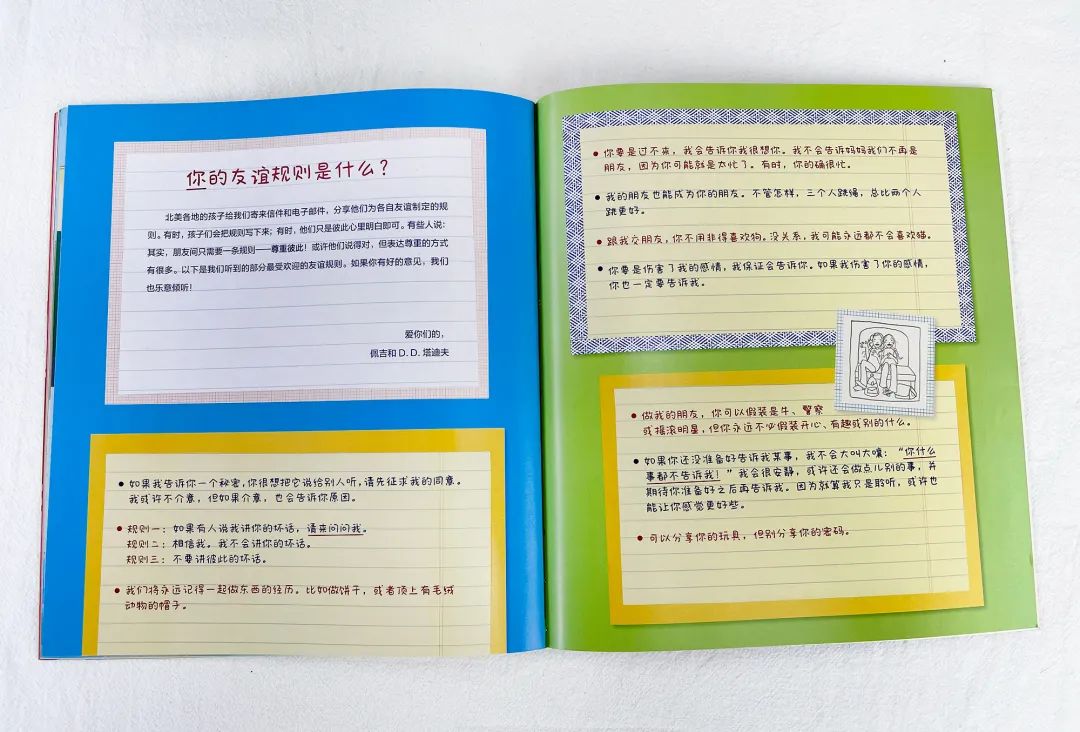 你的友谊规则是什么？
北美各地的孩子给我们寄来信件和电子邮件，分享他们为各自友谊制定的规
则。有时，孩子们会把规则写下来；有时，他们只是彼此心里明白即可。有些人说：
其实，朋友间只需要一条规则——尊重彼此！或许他们说得对，但表达尊重的方式
有很多。以下是我们听到的部分最受欢迎的友谊规则。如果你有好的意见，我们
也乐意倾听！
爱你们的，
佩吉和 D. D. 塔迪夫
• 如果我告诉你一个秘密，你很想把它说给别人听，请先征求我的同意。
我或许不介意，但如果介意，也会告诉你原因。
• 规则一：如果有人说我讲你的坏话，请来问问我。
规则二：相信我。我不会讲你的坏话。
规则三：不要讲彼此的坏话。
• 我们将永远记得一起做东西的经历。比如做饼干，或者顶上有毛绒
动物的帽子。
• 你要是过不来，我会告诉你我很想你。我不会告诉妈妈我们不再是
朋友，因为你可能就是太忙了。有时，你的确很忙。
• 我的朋友也能成为你的朋友。不管怎样，三个人跳绳，总比两个人
跳更好。
• 跟我交朋友，你不用非得喜欢狗。没关系，我可能永远都不会喜欢猫。
• 你要是伤害了我的感情，我保证会告诉你。如果我伤害了你的感情，
你也一定要告诉我。
• 做我的朋友，你可以假装是牛、警察
或摇滚明星，但你永远不必假装开心、有趣或别的什么。
• 如果你还没准备好告诉我某事，我不会大叫大嚷：“你什么
事都不告诉我！”我会很安静，或许还会做点儿别的事，并
期待你准备好之后再告诉我。因为就算我只是聆听，或许也
能让你感觉更好些。
• 可以分享你的玩具，但别分享你的密码。